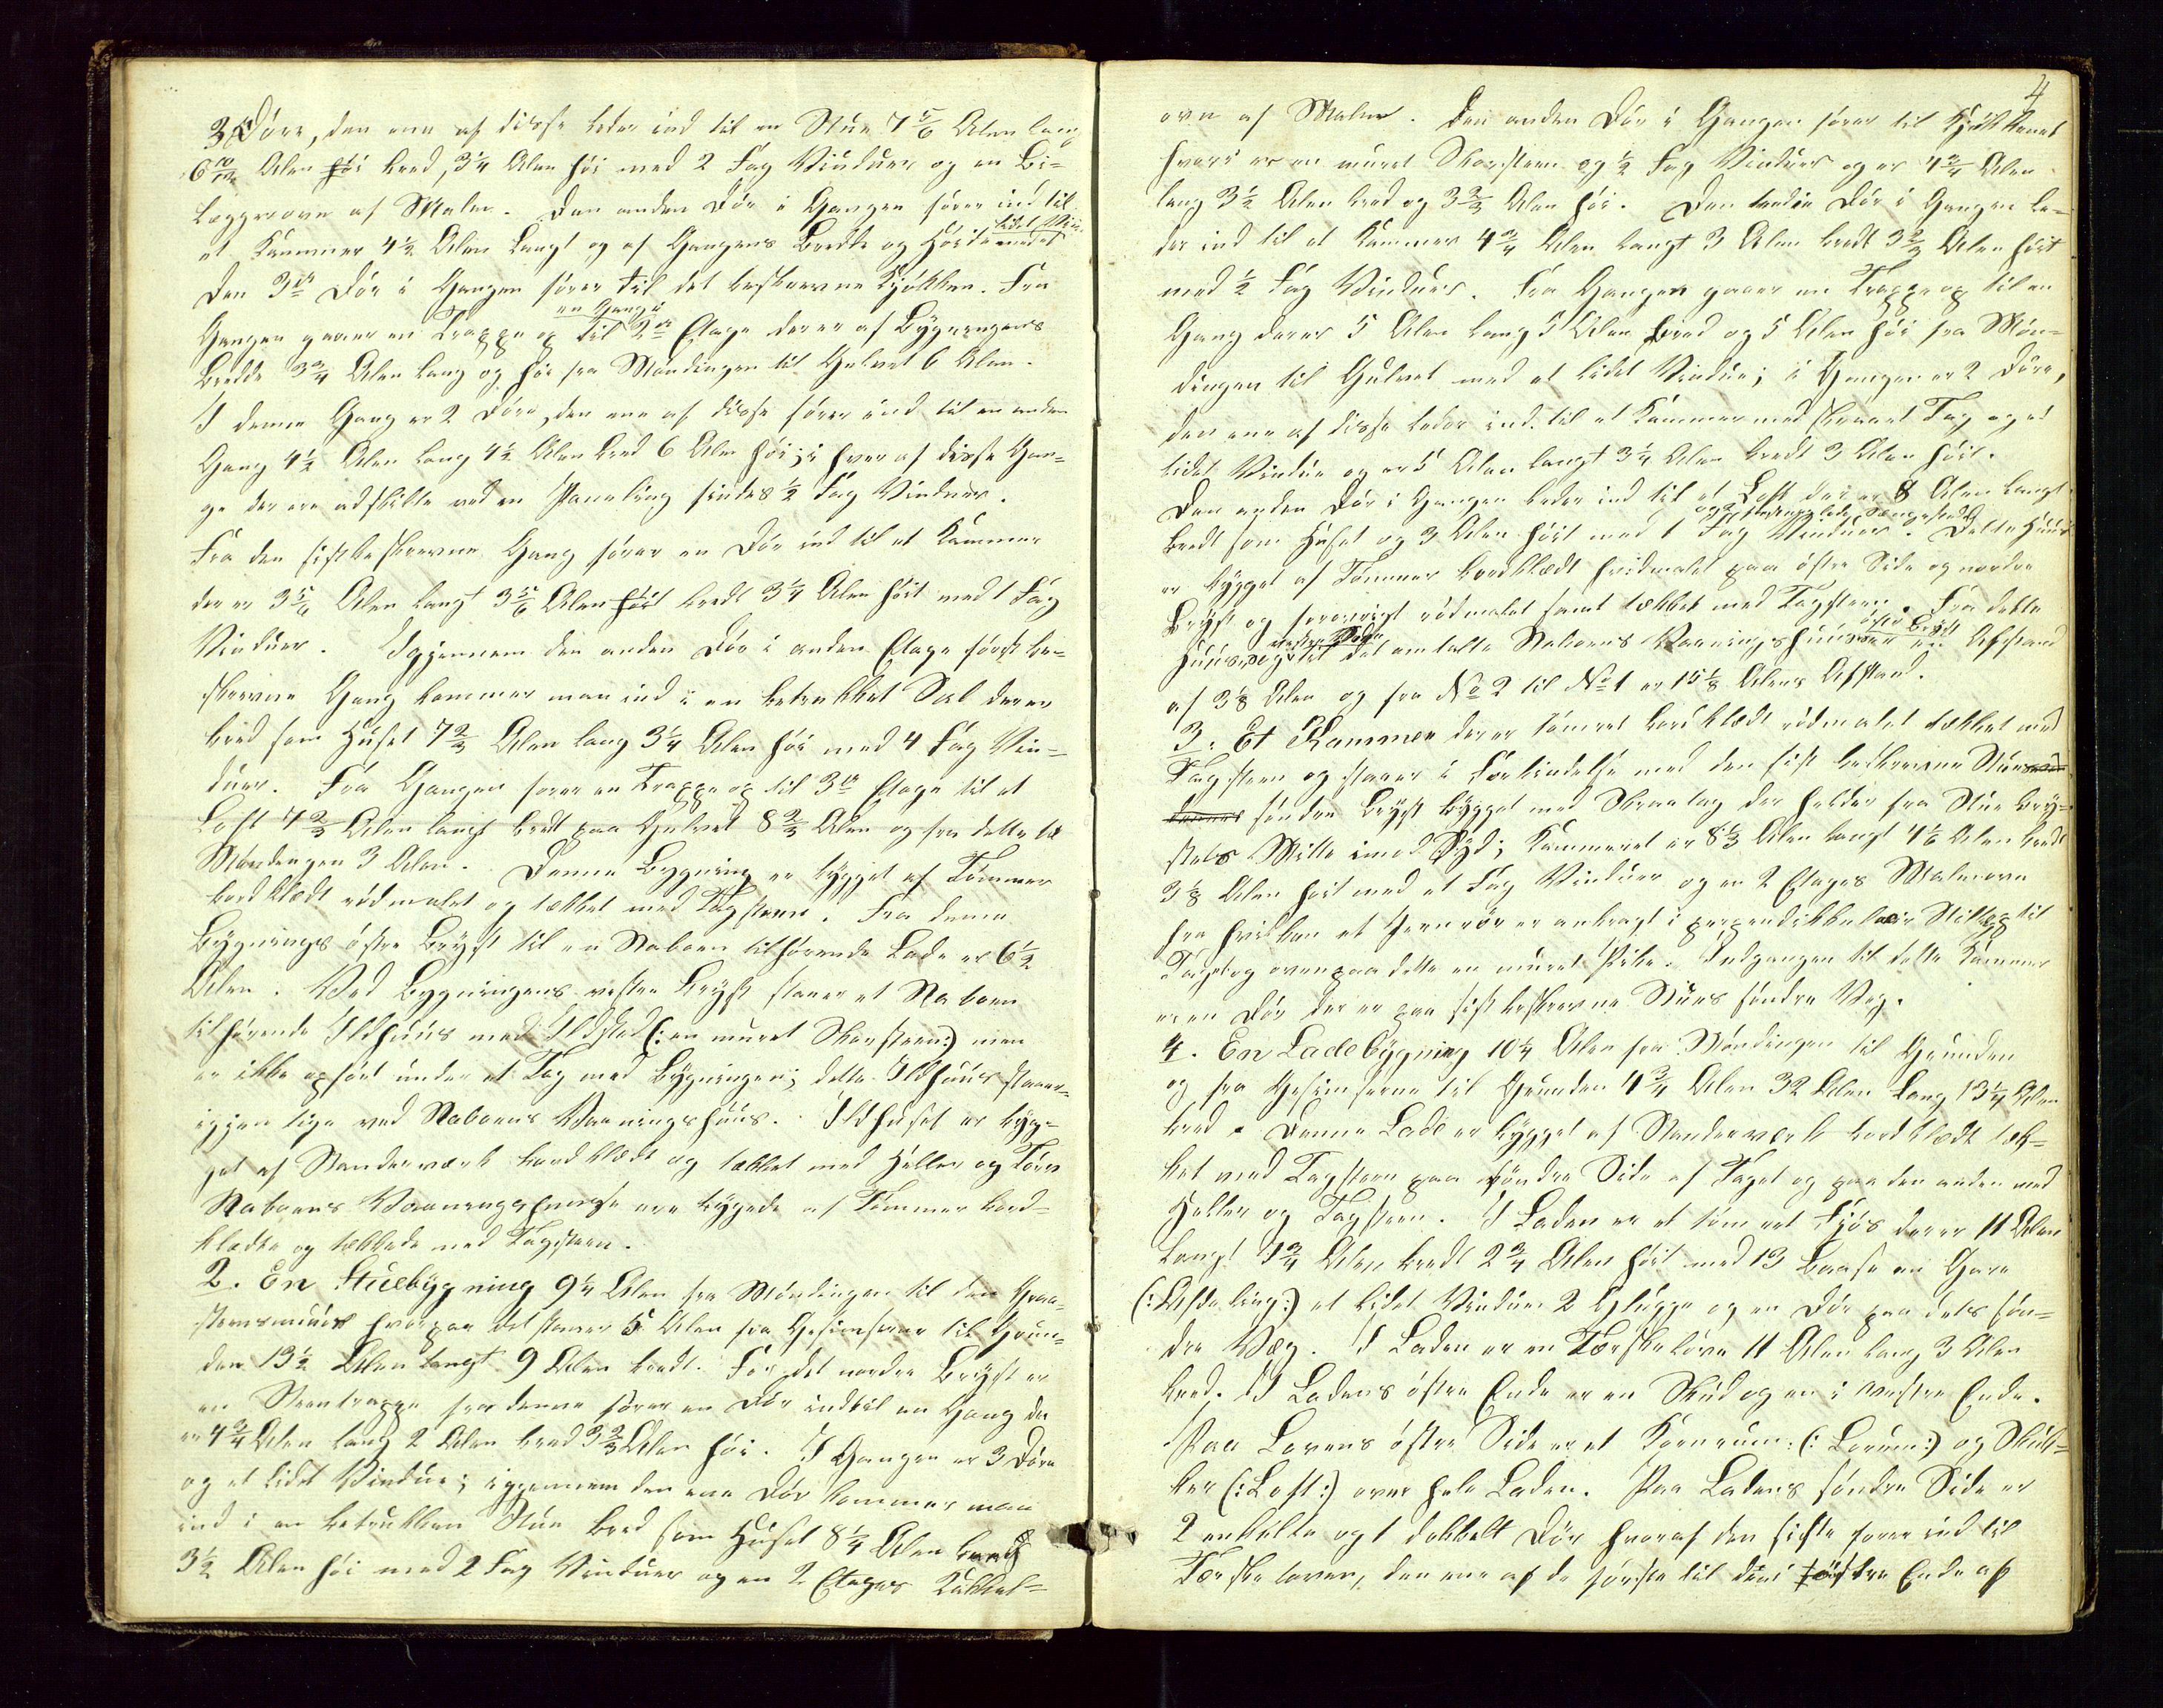 3 Döre, den ene af disse leder ind til en Stue 7 5/6 Alen lang
6 10/12 Alen höi bred, 3 1/4 Alen höi med 2 Fag Vinduer og en Bi-
læggerovn af Malm. Den anden Dör i Gangen förer ind til
et Kammer 4 1/2 Alen langt og af Gangens Bredde og Höide
Den 3die Dör i Gangen förer til det beskrevne Kjökken. Fra
Gangen gaaer en Trappe op til en Gang i 2den Etage der er af Bygningens
Bredde 3 3/4 Alen lang og höi fra Möndingen til Gulvet 6 Alen.
I denne Gang er 2 Döre, den ene af disse förer ind til en anden
Gang 4 1/2 Alen lang 4 1/2 Alen bred 6 Alen höi; i hver af disse Gan-
ge der ere adskilte ved en Paneling findes 1/2 Fag Vinduer.
Fra den sidstbeskrevne Gang förer en Dör ind til et Kammer
der er 3 5/6 Alen langt 3 5/6 Alen höit bredt 3 1/4 Alen höit med 1 Fag
Vinduer. Igjennem den anden Dör i anden Etage först be-
skrevne Gang kommer man ind i en betrukket Sal der er
bred som Huset 7 2/3 Alen lang 3 1/4 Alen höi med 4 Fag Vin-
duer. Fra Gangen förer en Trappe op til 3die Etage til et
Loft 7 2/3 Alen langt bredt paa Gulvet 8 2/3 Alen og fra dette til
Möndingen 3 Alen. Denne Bygning er bygget af Tömmer
bordklædt rödmalet og tækket med Tagsteen. Fra denne
Bygnings östre Bryst til en Naboen tilhörende Lade er 6 1/2
Alen. Ved Bygningens vestre Bryst staaer et Naboen
tilhörende Ildhuus med Ildsted (: en muret Skorsteen :) men
er ikke opfört under et Tag med Bygningen; dette Ildhuus staaer
igjen lige ved Naboens Vaaningshuus. Ildhuset er byg-
get af Stenderværk bordklædt og tækket med Heller og Törv
Naboens Vaaningshuse ere byggede af Tömmer bord-
klædte og tækkede med Tagsteen.
2. En Stuebygning 9 1/4 Alen fra Möndingen til den Graa-
steensmuur hvorpaa det staaer 5 Alen fra Gesimserne til Grun-
den 13 1/2 Alen langt 9 Alen bredt. For det nordre Bryst er
en Steentrappe fra denne förer en Dör indtil en Gang der
er 4 3/4 Alen lang 2 Alen bred 3 2/3 Alen höi. I Gangen er 3 Döre
og et lidet Vindue; igjennem den ene Dör kommer man
ind i en betrukken Stue bred som Huset 8 1/4 Alen lang
3 1/2 Alen höi med 2 Fag Vinduer og en 2 Etages Kakkel-
4
ovn af Malm. Den anden Dör i Gangen förer til Kjökkenet
hvori er en muret Skorsteen og 1/2 Fag Vinduer og er 4 3/4 Alen
lang 3 1/2 Alen bred og 3 2/3 Alen höi. Den tredie Dör i Gangen le-
der ind til et Kammer 4 3/4 Alen langt 3 Alen bredt 3 2/3 Alen höit
med 1/2 Fag Vinduer. Fra Gangen gaaer en Trappe op til en
Gang der er 5 Alen lang 5 Alen bred og 5 Alen höi fra Mön-
dingen til Gulvet med et lidet Vindue; i Gangen er 2 Döre,
den ene af disse leder ind til et Kammer med skraaet Tag og et
lidet Vindue og er 5 Alen langt 3 1/4 Alen bredt 3 Alen höit.
Den anden Dör i Gangen leder ind til et Loft der er 8 Alen langt
bredt som Huset og 3 Alen höit med 1 Fag Vinduer. Dette Huus
er bygget af Tömmer bordklædt hvidmalet paa östre Side og nordre
Bryst og forövrigt rödmalet samt tækket med Tagsteen. Fra dette
Huuses vestre Side og til det omtalte Naboens Vaaningshuuses östre Bryst er en Afstand
af 3 1/8 Alen og fra No 2 til No 1 er 15 1/8 Alens Afstand.
3. Et Kammer der er tömret bordklædt rödmalet tækket med
Tagsteen og staaer i Forbindelse med den sidst beskrevne Stues
söndre Bryst bygget med Skraatag der helder fra Stue Bry-
stets Midte imod Syd; Kammeret er 8 1/3 Alen langt 4 1/6 Alen bredt
3 1/8 Alen höit med et Fag Vinduer og en 2 Etages Malmovn
fra hvilken et Jernrör er anbragt i perpendikkelair Stilling til
Taget og ovenpaa dette en muret Pibe. Indgangen til dette Kammer
er en Dör der er paa sidst beskrevne Stues söndre Væg.
4. En Ladebygning 10 1/4 Alen fra Möndingen til Grunden
og fra Gesimserne til Grunden 4 3/4 Alen 32 Alen lang 13 1/4 Alen
bred. Denne Lade er bygget af Stenderværk bordklædt tæk-
ket med Tagsteen paa söndre Side af Taget og paa den anden med
Heller og Tagsteen. I Laden er et tömret Fjös der er 11 Alen
langt 7 3/4 Alen bredt 2 3/4 Alen höit med 13 Baase en Gare
(: Afdeling :) et lidet Vindue 2 Glugge og en Dör paa dets sön-
dre Væg. I Laden er en Tærskelöve 11 Alen lang 3 Alen
bred. I Ladens östre Ende er en Skud og en i vestre Ende.
Paa Lovens östre Side er et Kornrum (: Lorum :) og Stul-
ker (: Loft :) over hele Laden. Paa Ladens söndre Side er
2 enkelte og 1 dobbelt Dör hvoraf den sidste förer ind til
Tærskeloven, den ene af de förste til den i östre Ende af